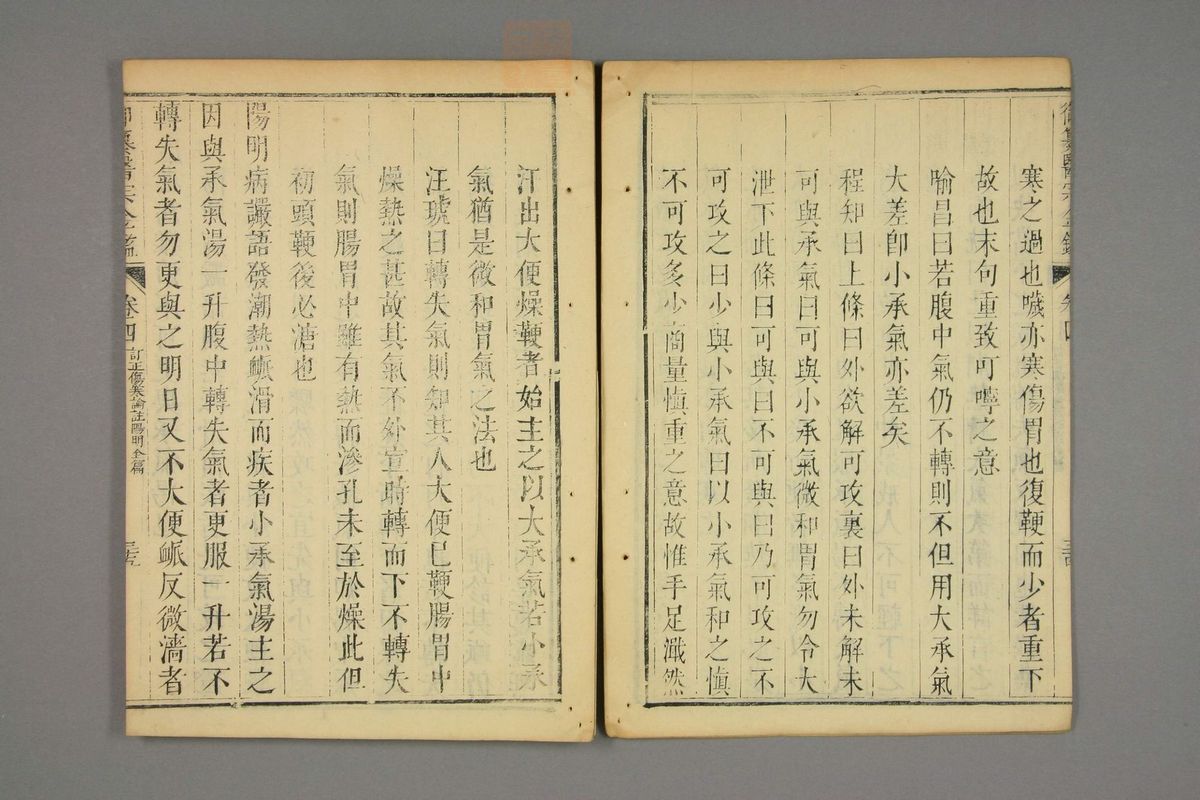 御纂醫宗金鑑 卷四
寒之過也噦亦寒傷胃也復鞕而少者重下
故也末句重致可嚀之意
喻昌曰若腹中氣仍不轉則不但用大承氣
大差卽小承氣亦差矣
程知曰上條曰外欲解可攻裏曰外未解未
可與承氣曰可與小承氣微和胃氣勿令大
泄下此條曰可與曰不可與曰乃可攻之不
可攻之曰少與小承氣曰以小承氣和之愼
不可攻多少商量愼重之意故惟手足濈然
汗出大便燥鞕者始主之以大承氣若小承
氣猶是微和胃氣之法也
汪琥曰轉失氣則知其人大便已鞕腸胃中
燥熱之甚故其氣不外宣時轉而下不轉失
氣則腸胃中雖有熱而滲孔未至於燥此但
初頭鞕後必溏也
陽明病讝語發潮熱脈滑而疾者小承氣湯主之
因與承氣湯一升腹中轉失氣者更服一升若不
轉失氣者勿更與之明日又不大便脈反微濇者
御纂醫宗金鑑 卷四 訂正傷寒論註陽明全篇